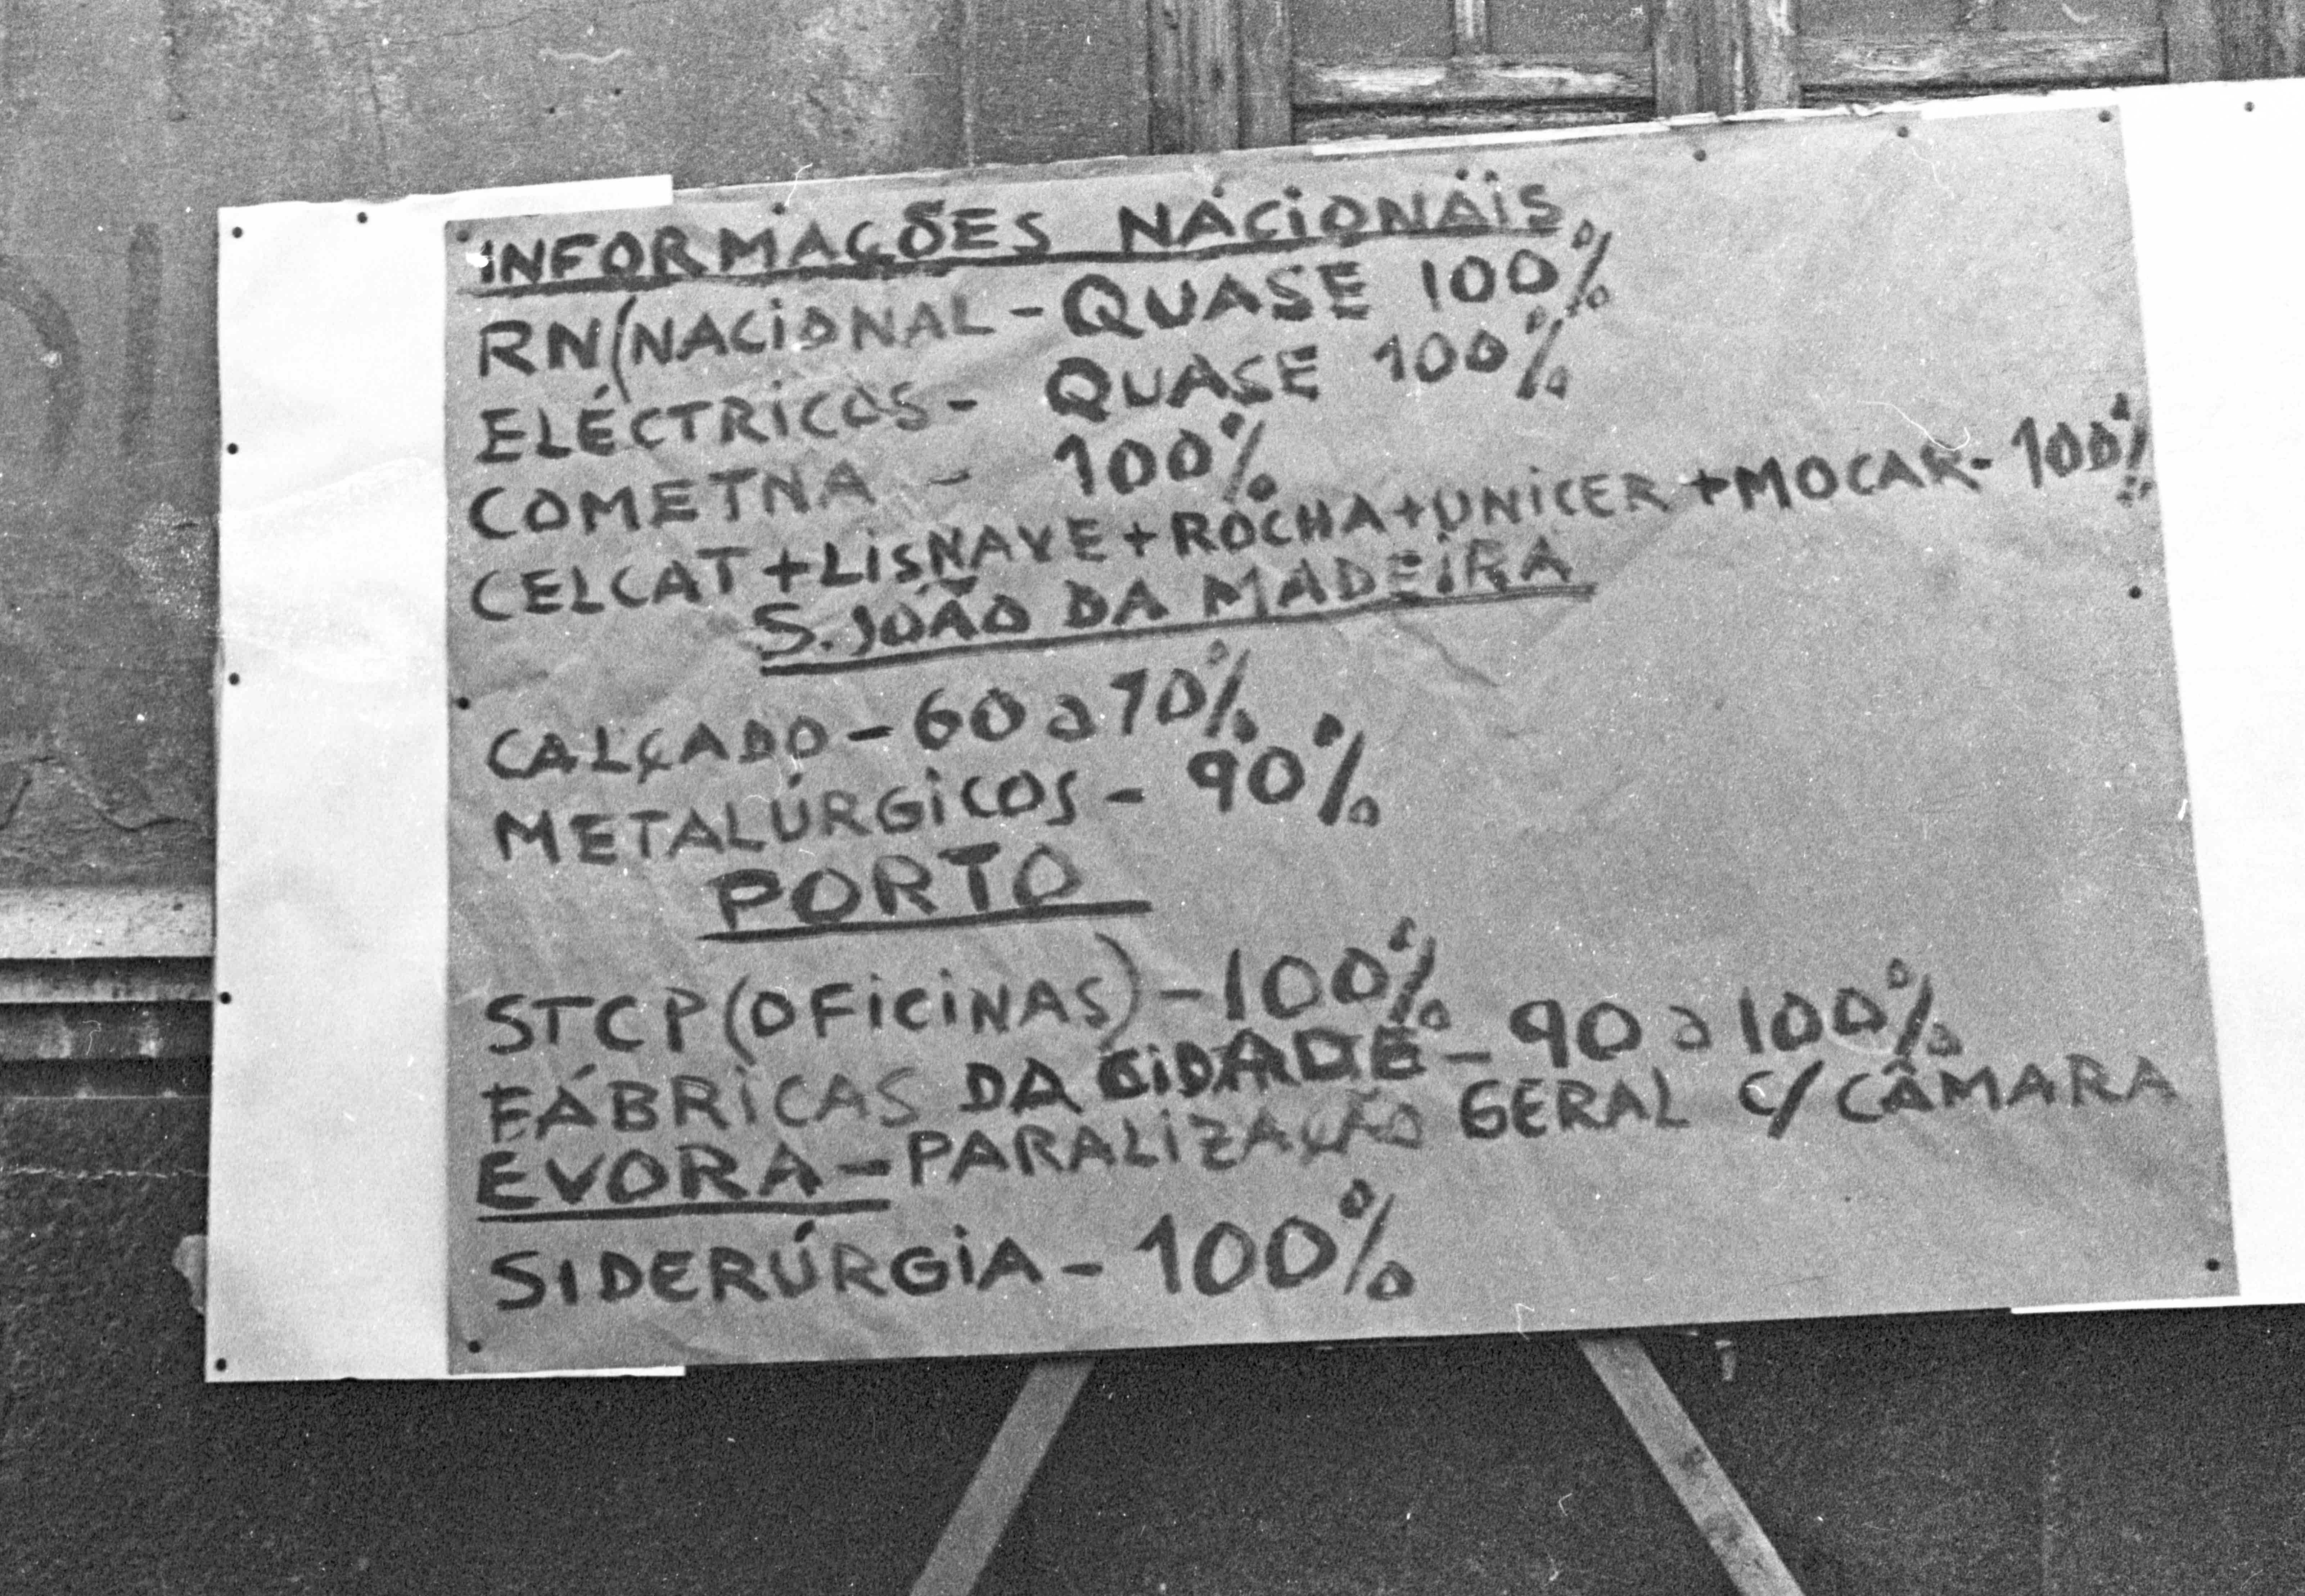 INFORMAÇÕES NACIONAIS
RN(NACIONAL - QUASE 100%
ELÉCTRICOS - QUASE 100%
COMETNA - 100%
CELCAT+LISNAVE+ROCHA+UNICER+MOCAR- 100%
S. JOÃO DA MADEIRA
CALÇADO - 60 a 70%
METALÚRGICOS - 90%
PORTO
STCP (OFICINAS) - 100%
FÁBRICAS DA CIDADE - 90 a 100%
EVORA - PARALIZAÇÃO GERAL C/ CÂMARA
SIDERÚRGIA - 100%